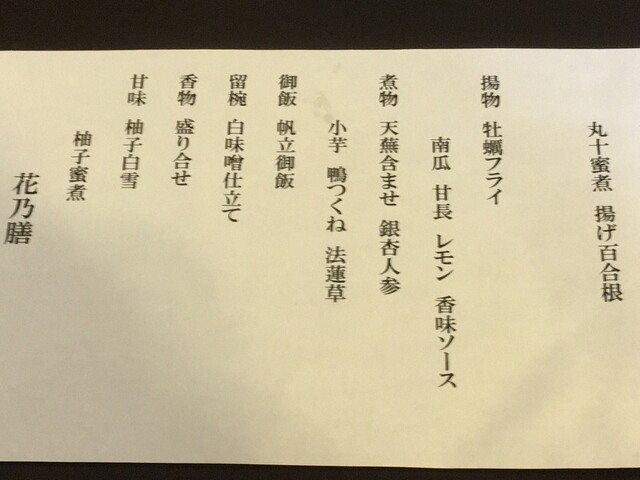 丸十蜜煮 揚げ百合根
揚物 牡蠣フライ
南瓜 甘長 レモン 香味ソース
煮物 天蕪含ませ 銀杏人参
小芋 鴨つくね 法蓮草
御飯 帆立御飯
留椀 白味噌仕立て
香物 盛り合せ
甘味 柚子白雪
柚子蜜煮
花乃膳